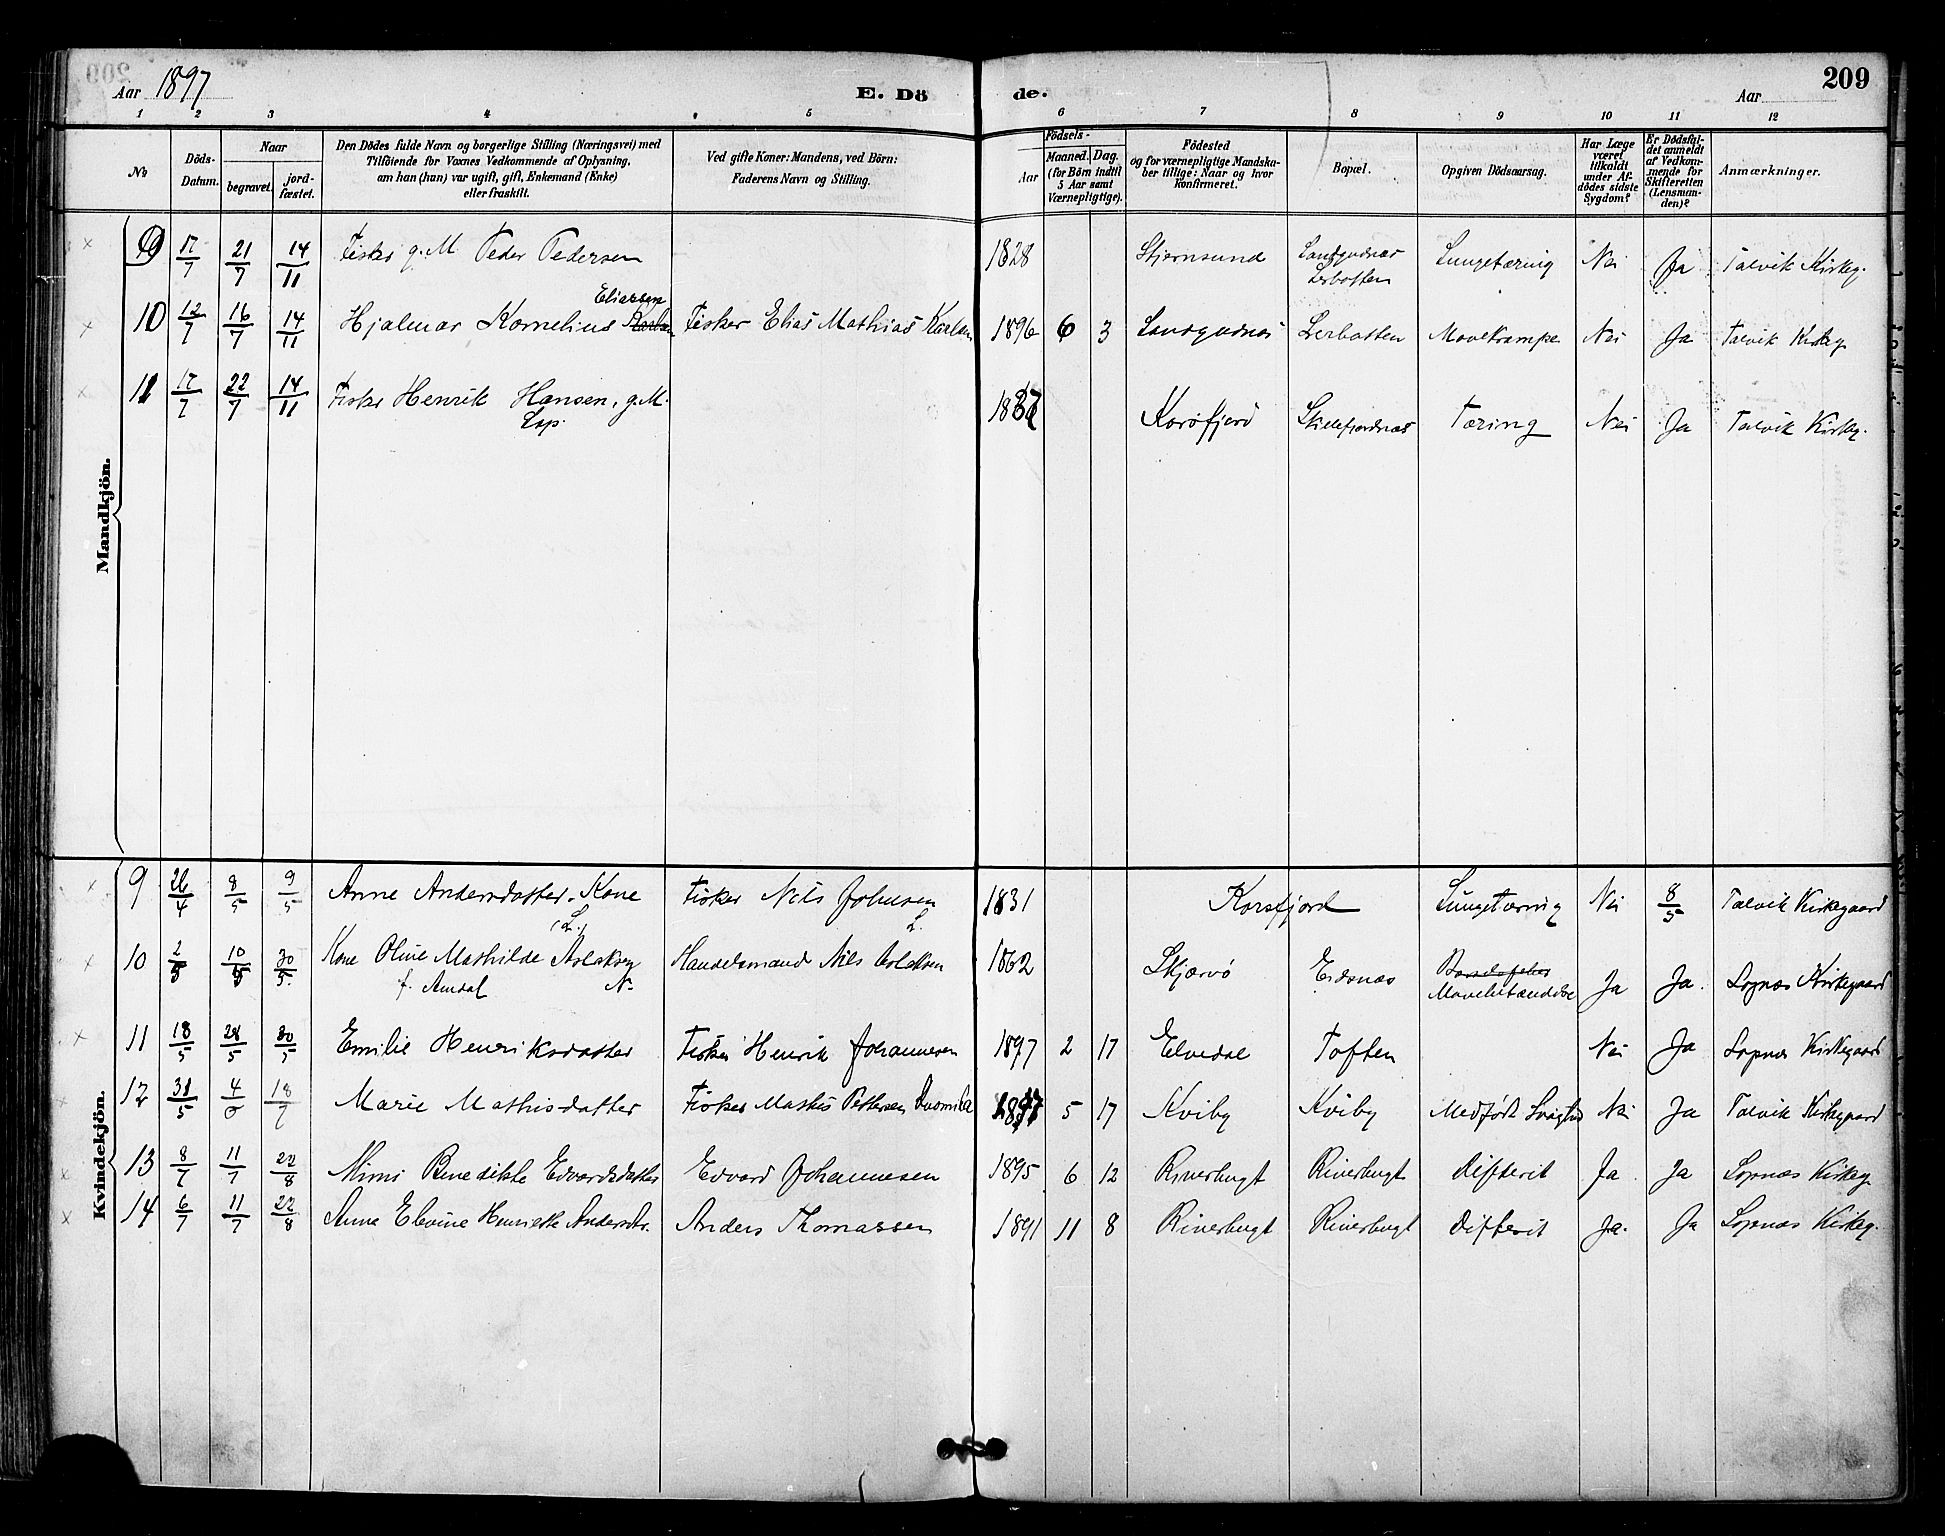 209
Aar 1897
E. Dö de.
Aar
1 2 3 4 5 6 7 8 9 10 11 12
No
Döds-Datum.
Naar
begravet.
jord-fæstet.
Den Dödes fulde Navn og borgerlige Stilling (Næringsvei) med
Tilföiende for Voxnes Vedkommende af Oplysning,
om han (hun) var ugift, gift, Enkemand (Enke)
eller fraskilt.
Ved gifte Koner: Mandens, ved Börn:
Faderens Navn og Stilling.
Födsels-
Aar
Maaned. Dag.
(for Börn indtil
5 Aar samt
Værnepligtige).
Födested
og for værnepligtige Mandska-
ber tillige: Naar og hvor
konfirmeret.
Bopæl.
Opgiven Dödsaarsag.
Har Læge
været
tilkaldt
under Af-
dödes sidste
Sygdom?
Er Dödsfal-
det anmeldt
af Vedkom-
mende for
Skifteretten
(Lensman-
den)?
Anmærkninger.
Mandkjön.
9 17/7 21/7 14/11 Fisker g. M Peder Pedersen 1828 Stjernsund Landgudnæs Lerbotten Lungetæring Nei Ja Talvik Kirkeg.
10 12/7 16/7 14/11 Hjalmar Kornelius Karlsen Eliassen Fisker Elias Mathias Karlsen 1896 6 3 Lerbotten Mavekrampe Nei Ja Talvik Kirkeg
11 17/7 22/7 14/11 Fisker Henrik Hansen, g. M. Lap. Korsfjord Skillefjordnæs Tæring Nei Ja Talvik Kirkeg.
Kvindekjön.
9 26/4 8/5 9/5 Anne Andersdatter. Kone (L.) Fisker Nils Johnsen L. 1831 Korsfjord Lungetæring Nei 8/5 Talvik Kirkegaard
10 2/5 10/5 30/5. Kone Oline Mathilde Aslaksen f. Amdal N. Handelsmand Nils Aslaksen 1862 Skjærvö Eidsnæs Ja Ja. Sopnæs Kirkegaard
11 18/5 28/5 30/5 Emilie Henriksdatter Fisker Henrik Johannesen 1897 2 17 Elvedal Toften Nei Ja Sopnæs Kirkegaard
12 31/5 4/6 18/7 Marie Mathisdatter Fisker Mathis Pettersen 1897 5 17 Kviby Kviby Medfødt Svaghed Nei Ja Talvik Kirkegaard
13 8/7 11/7 22/8 Mimi Benedikte Edvardsdatter Edvard Johannesen 1895 6 12 Riverbugt Riverbugt Difterit Ja Ja Sopnæs Kirkeg.
14 6/7 11/7 22/8 Anna Elevine Henriette Andersdtr. Anders Thomassen 1891 11 8 Riverbugt Riverbugt Difterit Ja. Ja Sopnæs Kirkeg.